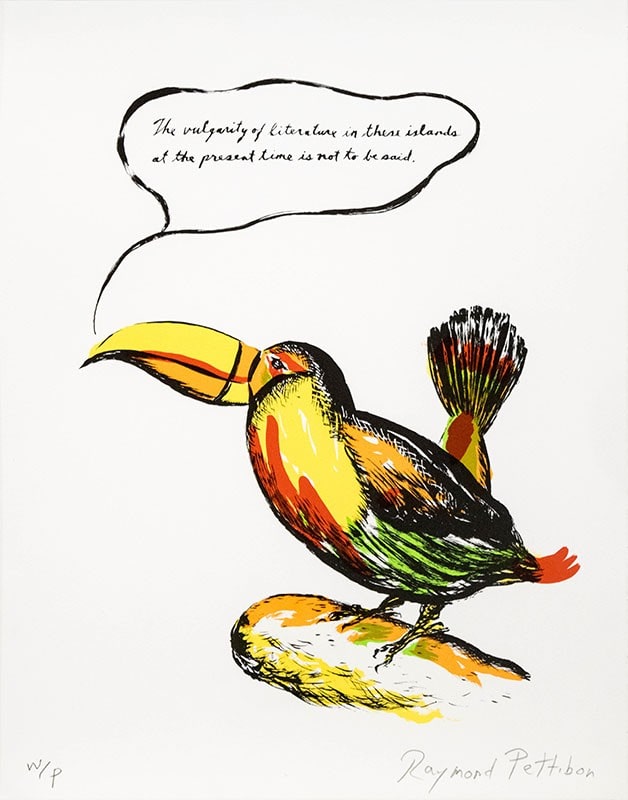 The vulgarity of literature in these islands
at the present time is not to be said.
W/P
Raymond Pettibon